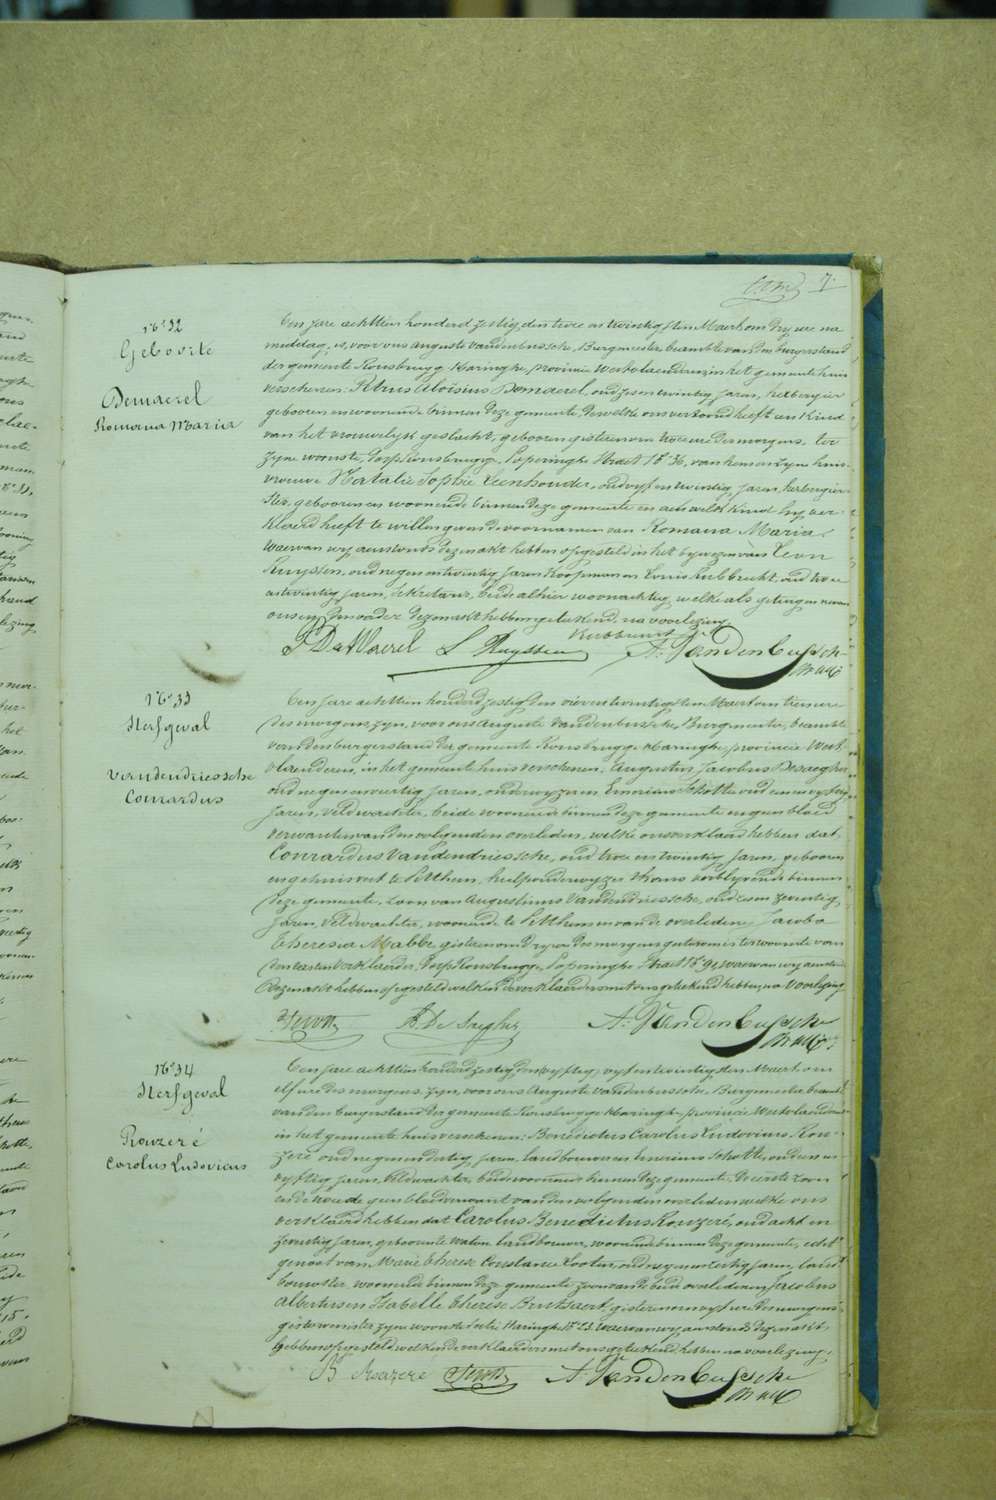 7.
N° 32
Geboorte
Demaerel
Romana Maria
Een jare achttien honderd zestig den twee en twintigsten Maert om dry ure na
middag, is, voor ons Auguste Vandenbussche, Burgmeester, beambte van den burgerstand
der gemeente Rousbrugge Haringhe, provincie Westvlaenderen in het gemeente huis
verschenen: Petrus Aloisius Demaerel, oud zes en twintig jaren, herbergier
geboren en woonende binnen deze gemeente, dewelke ons vertoond heeft een kind
van het vrouwelyk geslacht, geboren gisteren om twee ure des morgens, ter
zyne woonste, dorp Rousbrugge, Poperinghe straet N° 36, van hem en zyne huis-
vrouwe Natalie Sophie Leenhouder, oud vyf en twintig jaren, herbergier-
ster, geboren en woonende binnen deze gemeente en aen welk kind hy ver-
klaerd heeft te willen geven de voornamen van Romana Maria.
Waervan wy aenstonds deze makt hebben opgesteld in het bywezen van Leon
Ruyssen, oud negen en twintig jaren, koopman en Louis Lubbrecht, oud twee
en twintig jaren, sekretaris, beide alhier woonachtig, welke als getuigen
ons en den vader deze makt hebben geteekend, na voorlezing
P. DeMaerel L Ruyssen A. Vandenbussche
N° 33
Sterfgeval
Vandendriessche
Conrardus
Een jare achttien honderd zestig den vier en twintigsten Maert om tien ure
des morgens zyn, voor ons Auguste Vandenbussche, Burgmeester, beambte
van den burgerstand der gemeente Rousbrugge Haringhe provincie West
vlaenderen, in het gemeente huis verschenen, Augustus Jacobus Desaegher
oud negen en veertig jaren, onderwyzer en Emerinus Schotte oud een en vyftig
jaren, veldwachter, beide woonende binnen deze gemeente en geen bloed
verwanten van den volgenden overleden, welke ons verklaerd hebben dat,
Conrardus Vandendriessche, oud twee en twintig jaren, geboren
en gehuisvest te Pitthem, hulponderwyzer thans verblyvende binnen
deze gemeente, zoon van Augustinus Vandendriessche, oud zes en zeventig
jaren, veldwachter, woonende te Pitthem en van de overledene Jacoba
Theresia Mabbe gisteren om dry ure des morgens gestorven is ter woonste van
den eersten verklaerder, dorp Rousbrugge, Poperinghe straet N° 91, waervan wy aenstonds
deze makt hebben opgesteld welken de verklaerders met ons geteekend hebben, na voorlezing
A. De Saegher A. Vandenbussche
N° 34
Sterfgeval
Rouzeré
Carolus Ludovicus
Een jare achttien honderd zestig, den vyf en twintigsten Maert om
elf ure des morgens, zyn, voor ons Auguste Vandenbussche, Burgmeester beambte
van den burgerstand der gemeente Rousbrugge Haringhe provincie Westvlaenderen
in het gemeente huis verschenen: Benedictus Carolus Ludovicus Rou-
zeré oud negen en dertig jaren, landbouwer en Emerinus Schotte, oud een en
vyftig jaren, veldwachter, beide woonende binnen deze gemeente, de eerste zoon
en de tweede geen bloedverwant van den volgenden overleden welke ons
verklaerd hebben dat Carolus Benedictus Rouzeré, oud acht en
zeventig jaren, geboren te Watou landbouwer, woonende binnen deze gemeente, echt
genoot van Marie Therese Constance Lootin, oud negen en zestig jaren, land
bouwster, woonende binnen deze gemeente zoon van de beide overledenen Jacobus
Albertus en Isabelle Therese Brutsaert, gisteren om vyf ure des morgens
gestorven is ter zyne woonste sectie Haringhe N° 23 waervan wy aenstonds deze makt
hebben opgesteld welken de verklaerders met ons geteekend hebben na voorlezing.
B Rouzere A. Vandenbussche